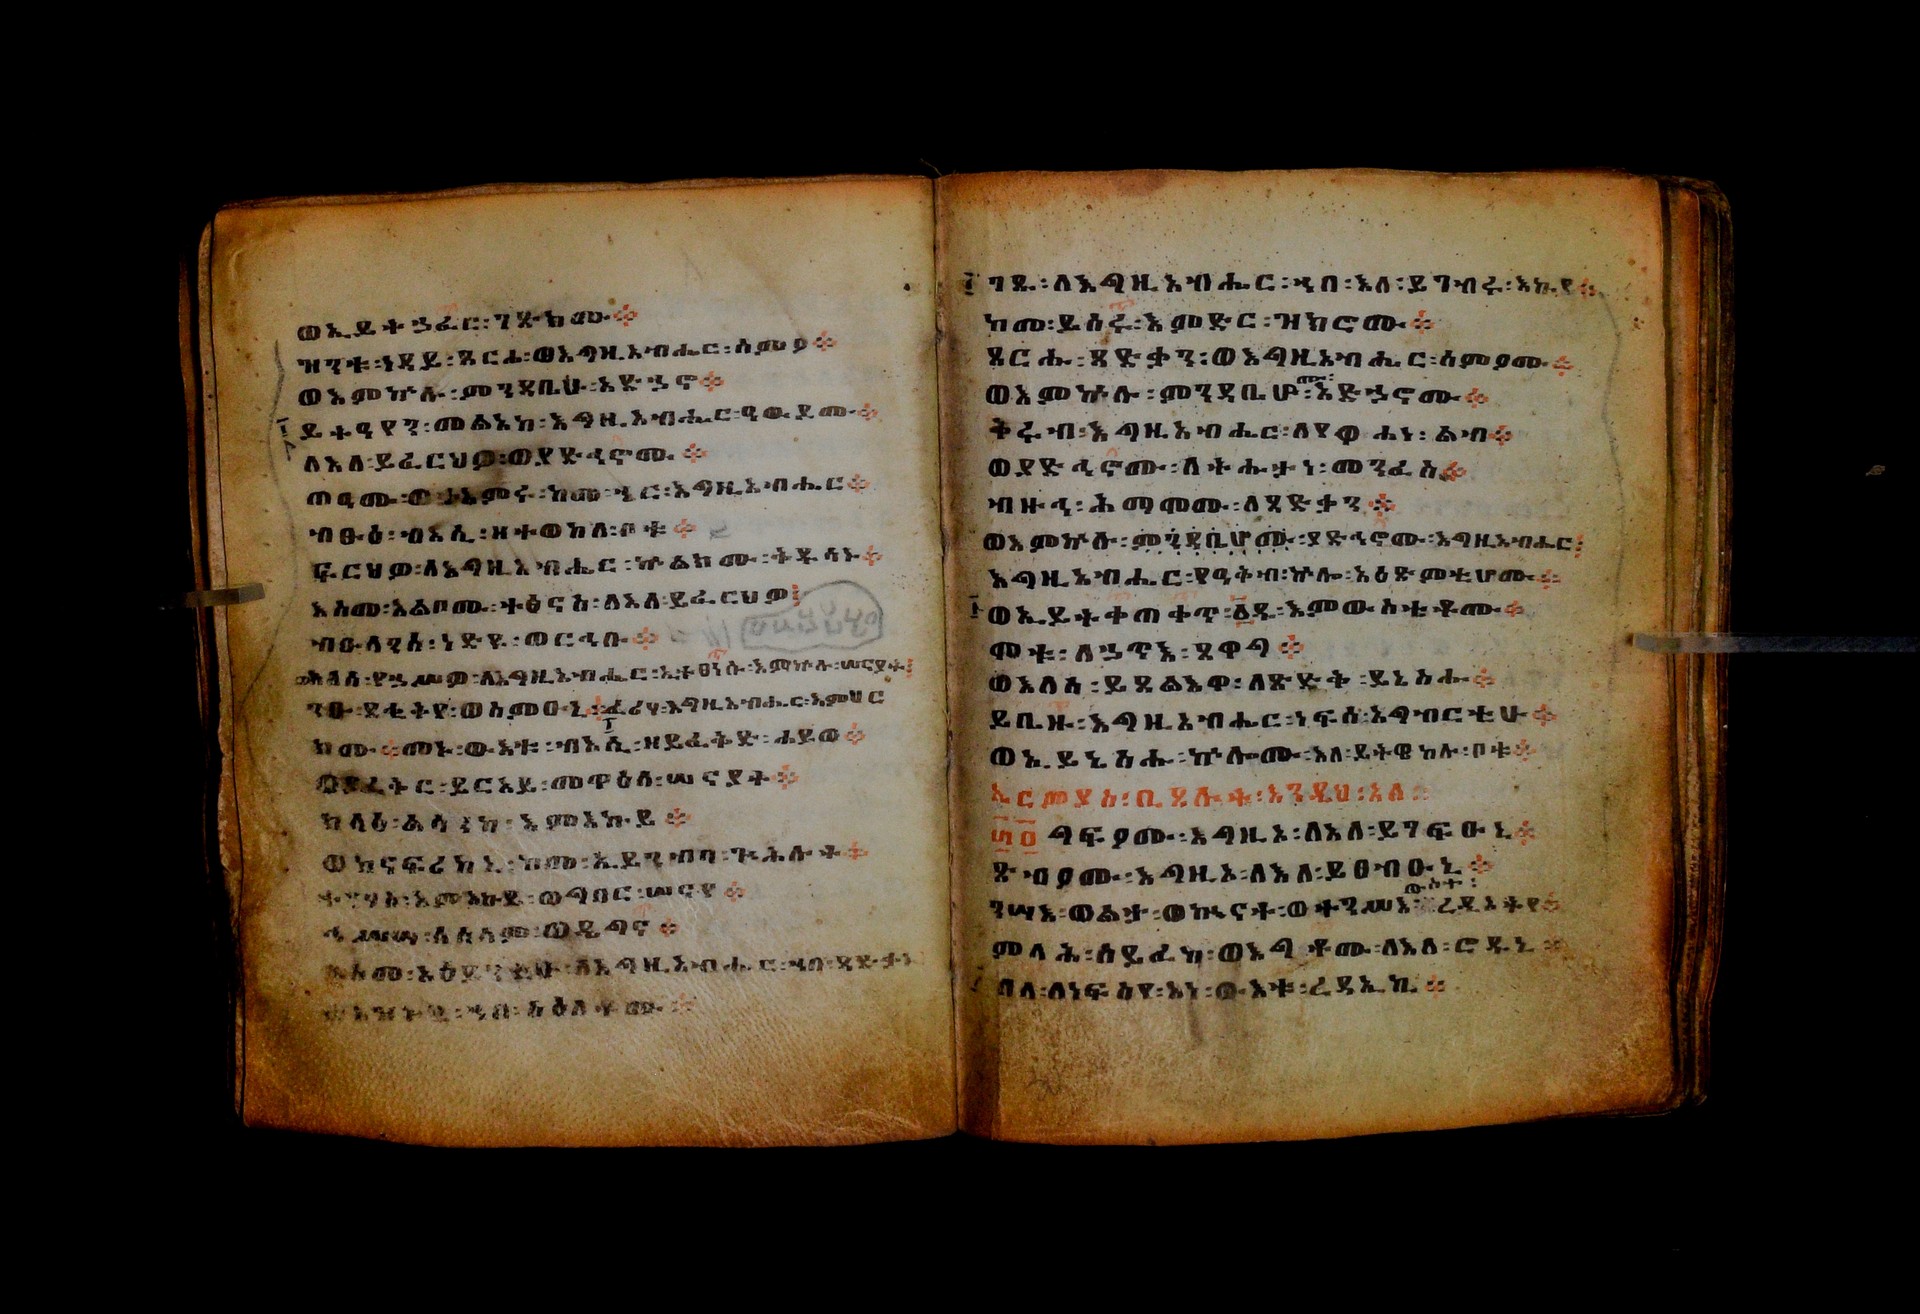 ወኢይትኃፈር፡ገጽክሙ።
ዝንቱ፡ነዳይ፡ጸርሐ፡ወእግዚአብሔር፡ሰምዖ።
ወእምኵሉ፡ምንዳቤሁ፡አድኃኖ።
ይትዓየን፡መልአከ፡እግዚአብሔር፡ዓውደሙ።
ለእለ፡ይፈርህዎ፡ወያድኅኖሙ።
ጠዓሙ፡ወታእምሩ፡ከመ፡ኄር፡እግዚአብሔር።
ብፁዕ፡ብእሲ፡ዘተወከለ፡ቦቱ።
ፍርህዎ፡ለእግዚአብሔር፡ኵልክሙ፡ቅዱሳኑ።
እስመ፡አልቦሙ፡ተፅናስ፡ለእለ፡ይፈርህዎ፤
ብዑላንሰ፡ነድዩ፡ወርኅቡ።
ወእለሰ፡የኃሥሥዎ፡ለእግዚአብሔር፡ኢተፀነሱ፡እምኵሉ፡ሠናይት፤
ንዑ፡ደቂቅየ፡ወስምዑኒ።ፈሪሃ፡እግዚአብሔር፡እምህር
ክሙ።መኑ፡ውእቱ፡ብእሲ፡ዘይፈቅድ፡ሐይወ።
ወያፈቅር፡ይርአይ፡መዋዕለ፡ሠናያት።
ከላእ፡ልሳነከ፡እምእኩይ።
ወከናፍሪከኒ፡ከመ፡ኢይንብባ፡ጕሕሉተ።
ተገሃሥ፡እምእኩይ፡ወግበር፡ሠናየ።
ኅሥሣ፡ለሰላም፡ወዴግና።
እስመ፡አዕይንቲሁ፡ለእግዚአብሔር፡ኀበ፡ጻድቃን
ወእዝኑሂ፡ኀበ፡ስዕለቶሙ።
ገጹ፡ለእግዚአብሔር፡ኀበ፡እለ፡ይገብሩ፡እኪየ።
ከመ፡ይሰሩ፡እምድር፡ዝክሮሙ።
ጸርሑ፡ጻድቃን፡ወእግዚአብሔር፡ሰምዖሙ።
ወእምኵሉ፡ምንዳቤሆሙ፡አድኃኖሙ።
ቅሩብ፡እግዚአብሔር፡ለየዋሐነ፡ልብ።
ወያድኅኖሙ፡ለትሑታነ፡መንፈስ።
ብዙኅ፡ሕማሞሙ፡ለጻድቃን።
ወእምኵሉ፡ምንዳቤሆሙ፡ያድኅኖሙ፡እግዚአብሔር፤
እግዚአብሔር፡የዓቅብ፡ኵሎ፡አዕጽምቲሆሙ።
ወኢይትቀጠቀጥ፡፩ዱ፡እምውስቴቶሙ።
ሞቱ፡ለኃጥእ፡ጸዋግ።
ወእለሰ፡ይጸልእዋ፡ለጽድቅ፡ይኔስሑ።
ይቤዙ፡እግዚአብሔር፡ነፍሰ፡አግብርቲሁ።
ወኢይኔስሑ፡ኵሎሙ፡እለ፡ይትዌከሉ፡ቦቱ።
ኤርምያስ፡ቢጸሉቱ፡እንዴህ፡አለ፡
፴፬ ግፍዖሙ፡እግዚኦ፡ለእለ፡ይገፍዑኒ።
ጽብዖሙ፡እግዚኦ፡ለእለ፡ይፀብዑኒ።
ንሣእ፡ወልታ፡ወኲናተ፡ወተንሥእ፡ውስተ፡ረዲኦትየ።
ምላሕ፡ሰይፈከ፡ወእግቶሙ፡ለእለ፡ሮዱኒ።
በላ፡ለነፍስየ፡አነ፡ውእቱ፡ረዳኢኪ።